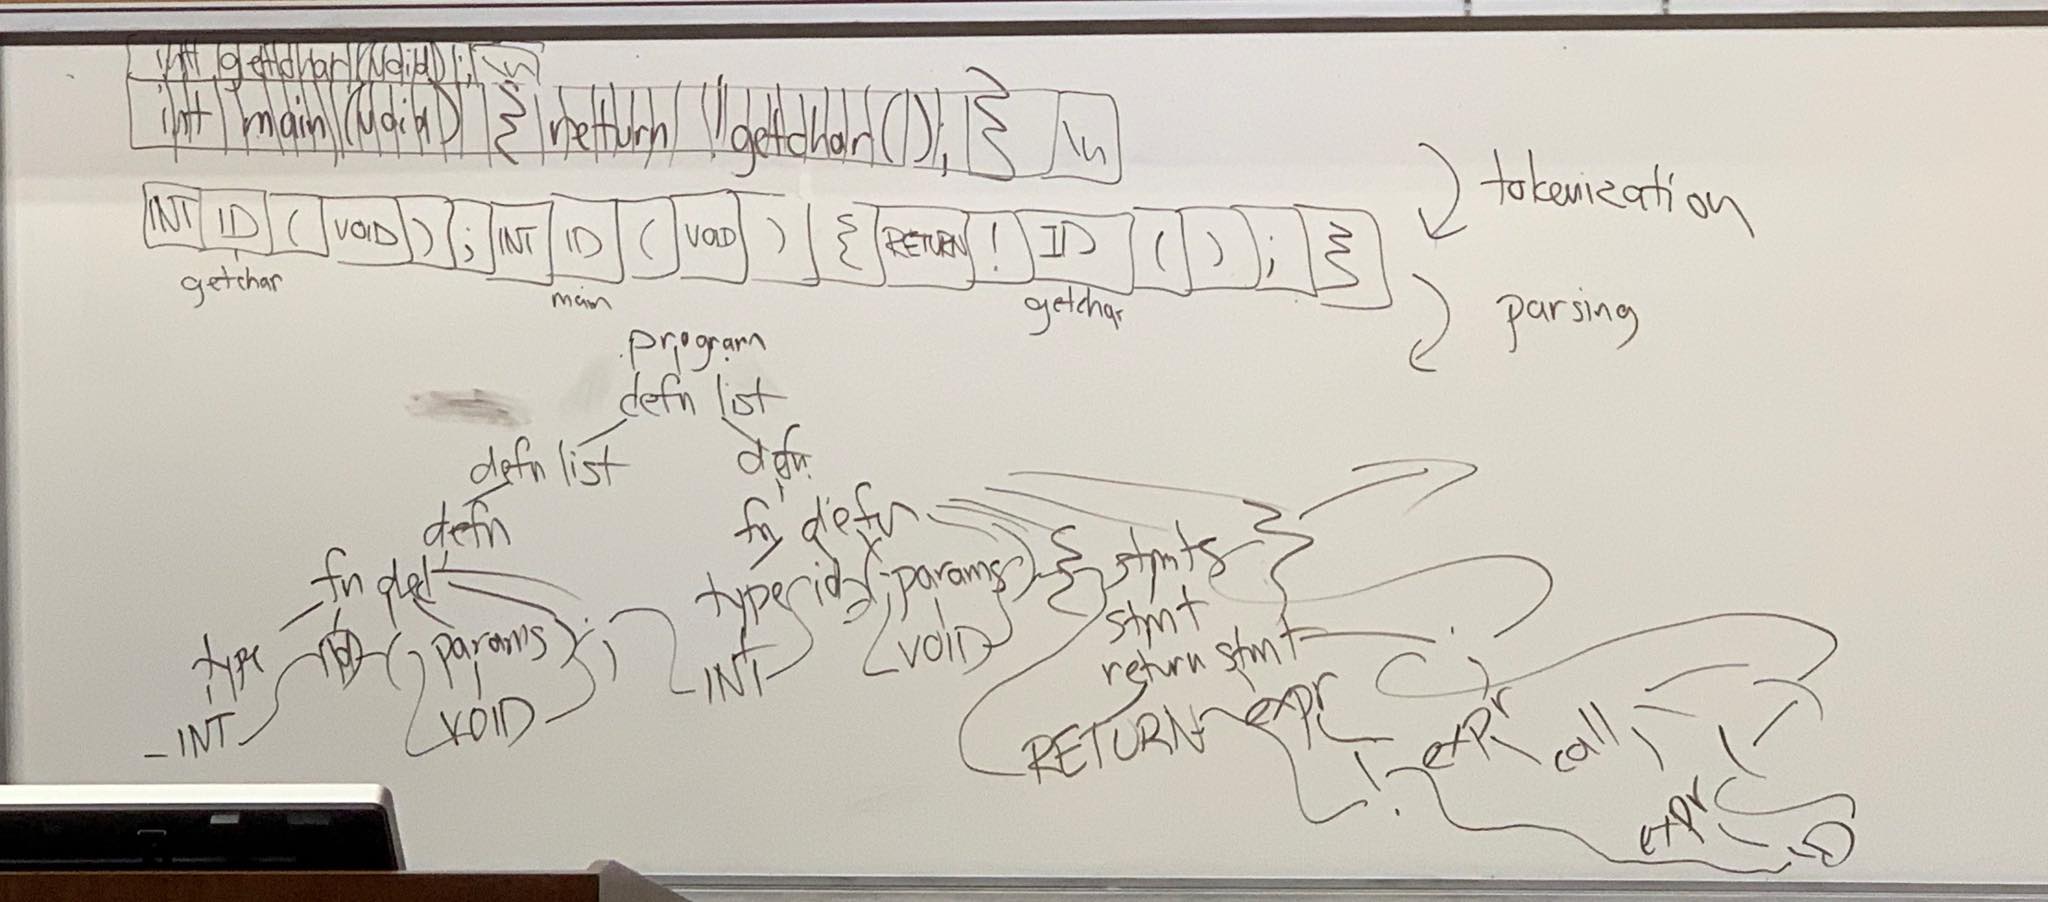 int getchar(void);\n
int main(void) { return !getchar(); } \n
INT ID ( VOID ) ; INT ID ( VOID ) { RETURN ! ID ( ) ; }
getchar main getchar
tokenization
parsing
program
defn list
defn list defn
defn fn defn
fn decl type id ( params ) { stmts }
type ID ( params ) ; INT VOID stmt
INT VOID return stmt ;
RETURN expr
! expr call ( )
expr ID